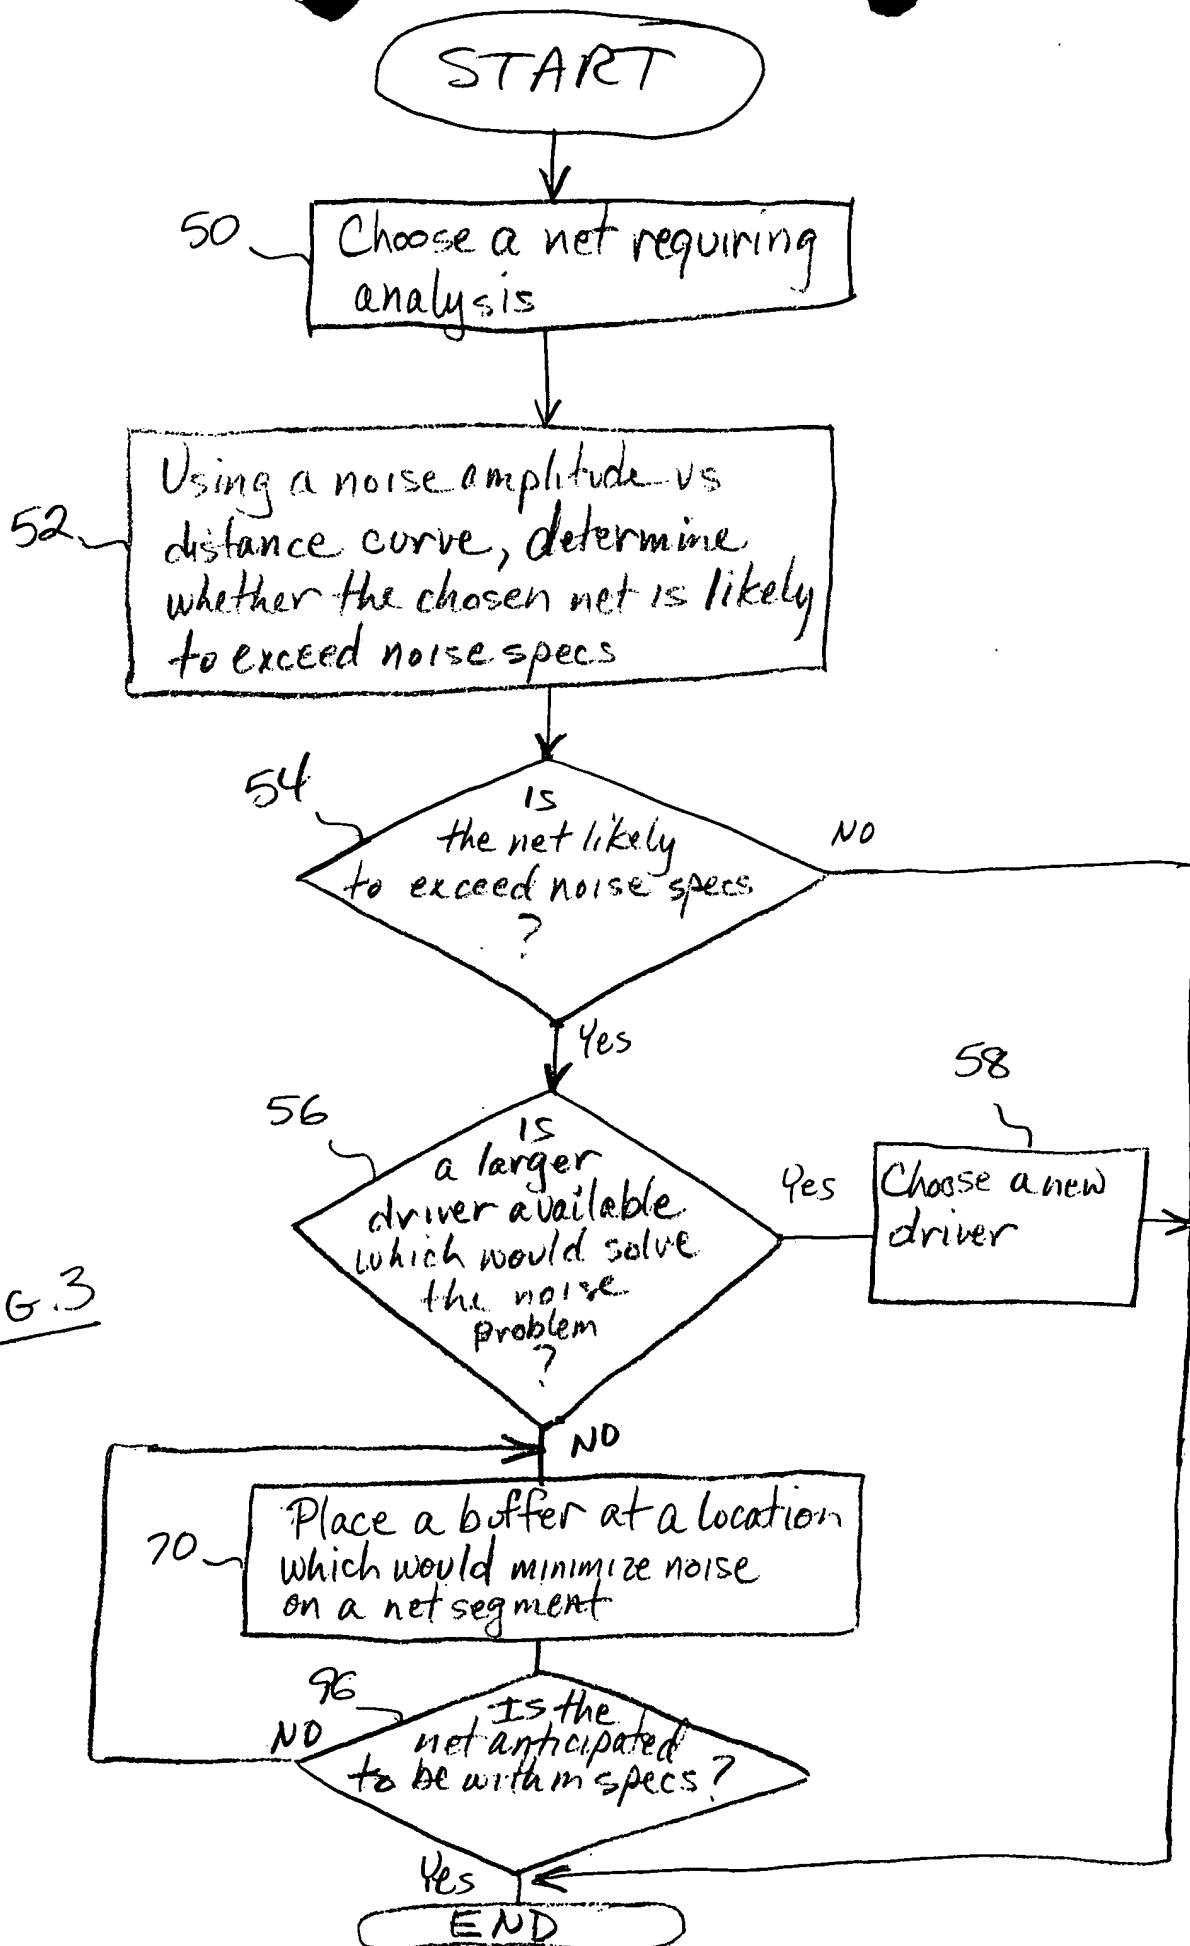 START
50
Choose a net requiring
analysis
52
Using a noise amplitude vs
distance curve, determine
whether the chosen net is likely
to exceed noise specs
54
Is
the net likely
to exceed noise specs
?
NO
Yes
56
Is
a larger
driver available
which would solve
the noise
problem
?
Yes
58
Choose a new
driver
G.3
NO
70
Place a buffer at a location
which would minimize noise
on a net segment
96
Is the
net anticipated
to be within specs?
NO
Yes
END